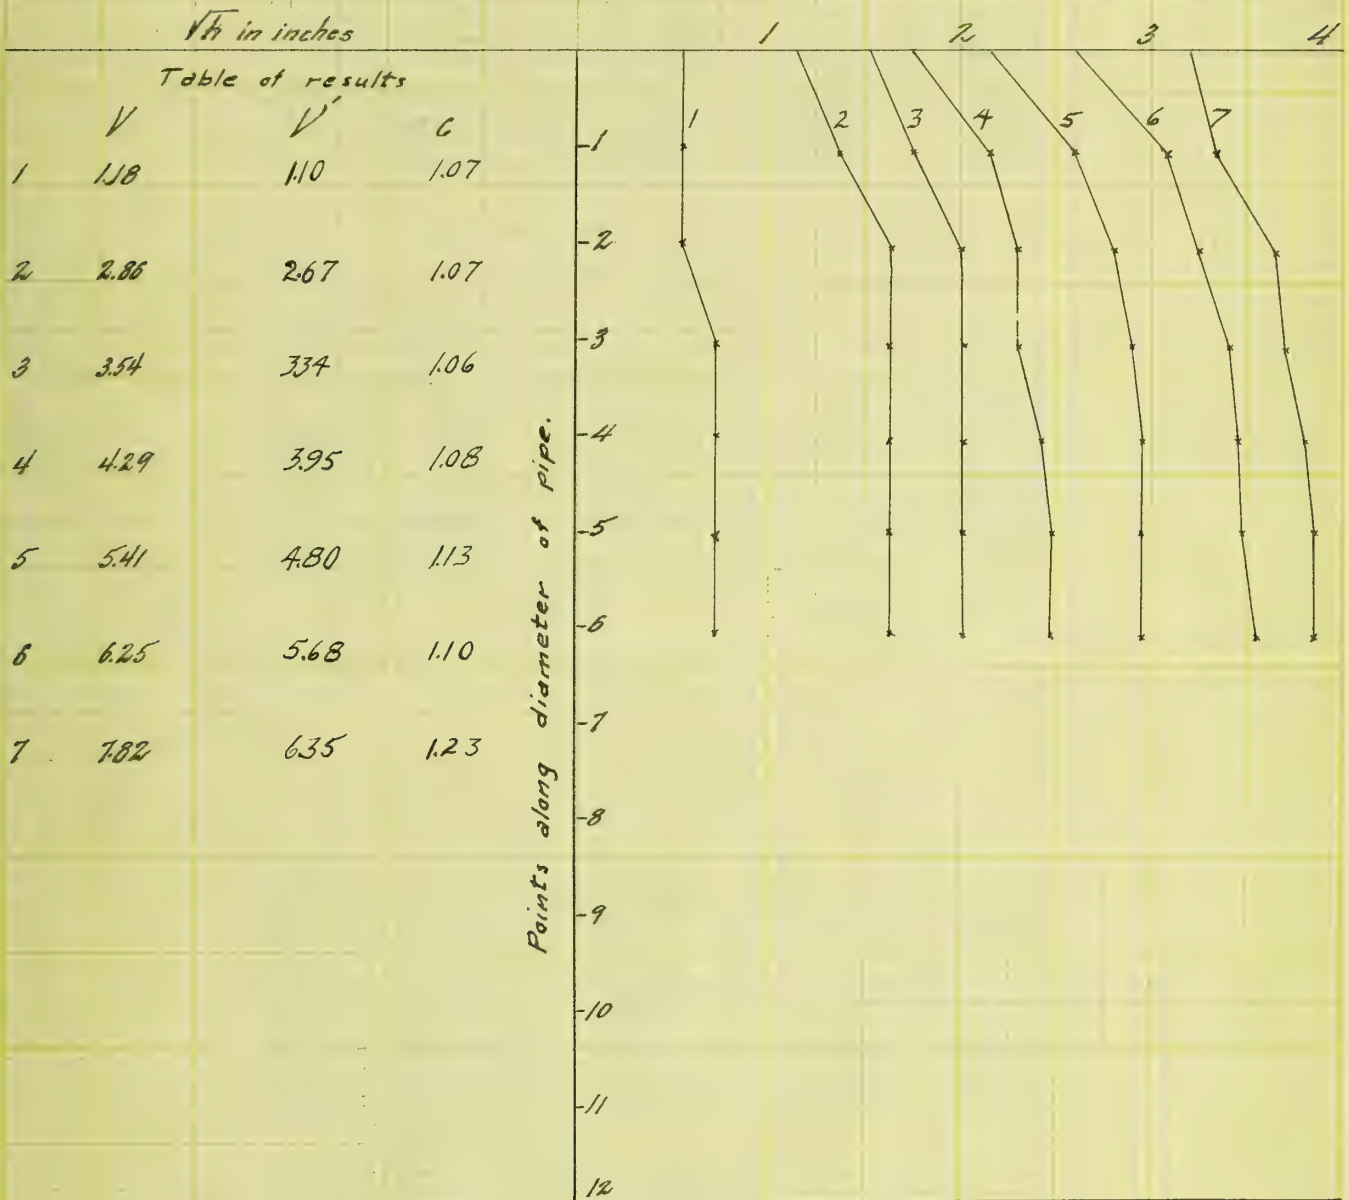 √h in inches
1 2 3 4
Table of results
V V' C
1 1.18 1.10 1.07
2 2.86 2.67 1.07
3 3.54 334 1.06
4 4.29 3.95 1.08
5 5.41 4.80 1.13
6 6.25 5.68 1.10
7 7.82 6.35 1.23
Points along diameter of pipe.
1 2 3 4 5 6 7
-1
-2
-3
-4
-5
-6
-7
-8
-9
-10
-11
12